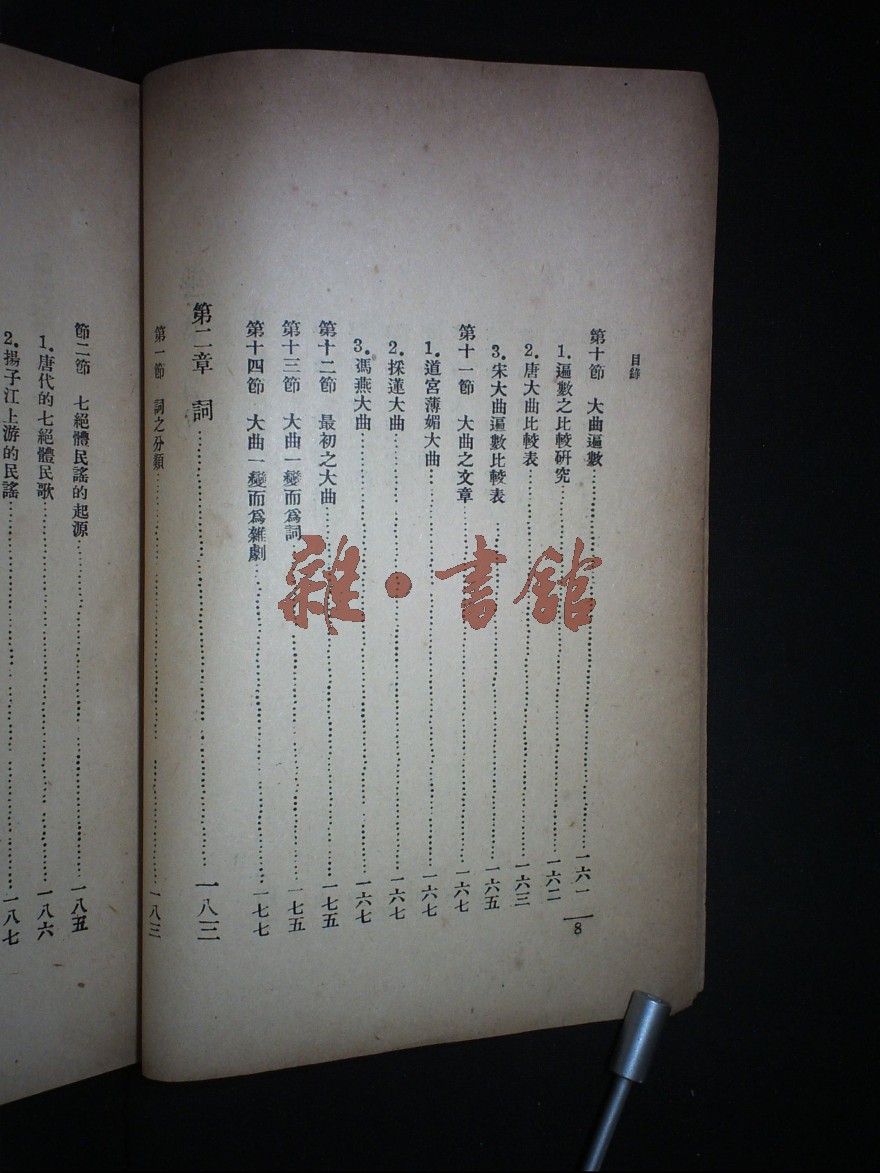 目錄
第十節　大曲遍數……一六一
1.遍數之比較研究……一六二
2.唐大曲比較表……一六三
3.宋大曲遍數比較表……一六五
第十一節　大曲之文章……一六七
1.道宮薄媚大曲……一六七
2.採蓮大曲……一六七
3.馮燕大曲……一六七
第十二節　最初之大曲……一七五
第十三節　大曲一變而爲詞……一七五
第十四節　大曲一變而爲雜劇……一七七
第二章　詞……一八三
第一節　詞之分類……一八三
8
節二節　七絕體民謠的起源……一八五
1.唐代的七絕體民歌……一八六
2.揚子江上游的民謠……一八七
雜·書館